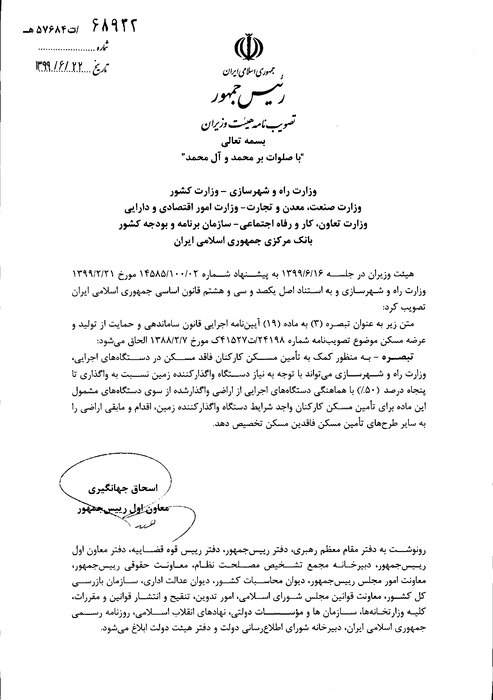 ۶۸۹۲۲ /ت۵۷۶۸۴هـ
شماره
تاریخ ۱۳۹۹/۶/۲۲
جمهوری اسلامی ایران
رئیس جمهور
تصویب نامه هیئت وزیران
بسمه تعالی
"با صلوات بر محمد و آل محمد"
وزارت راه و شهرسازی – وزارت کشور
وزارت صنعت، معدن و تجارت- وزارت امور اقتصادی و دارایی
وزارت تعاون، کار و رفاه اجتماعی- سازمان برنامه و بودجه کشور
بانک مرکزی جمهوری اسلامی ایران
هیئت وزیران در جلسه ۱۳۹۹/۶/۱۶ به پیشنهاد شماره ۱۴۵۸۵/۱۰۰/۰۲ مورخ ۱۳۹۹/۲/۲۱
وزارت راه و شهرسازی و به استناد اصل یکصد و سی و هشتم قانون اساسی جمهوری اسلامی ایران
تصویب کرد:
متن زیر به عنوان تبصره (۳) به ماده (۱۹) آیین‌نامه اجرایی قانون ساماندهی و حمایت از تولید و
عرضه مسکن موضوع تصویب‌نامه شماره ۲۴۱۹۸/ت۴۱۵۲۷ک مورخ ۱۳۸۸/۲/۷ الحاق می‌شود:
تبصره - به منظور کمک به تأمین مسکن کارکنان فاقد مسکن در دستگاه‌های اجرایی،
وزارت راه و شهرسازی می‌تواند با توجه به نیاز دستگاه واگذارکننده زمین نسبت به واگذاری تا
پنجاه درصد (۵۰٪) با هماهنگی دستگاه‌های اجرایی از اراضی واگذارشده از سوی دستگاه‌های مشمول
این ماده برای تأمین مسکن کارکنان واجد شرایط دستگاه واگذارکننده زمین، اقدام و مابقی اراضی را
به سایر طرح‌های تأمین مسکن فاقدین مسکن تخصیص دهد.
اسحاق جهانگیری
معاون اول رییس‌جمهور
رونوشت به دفتر مقام معظم رهبری، دفتر رییس‌جمهور، دفتر رییس قوه قضاییه، دفتر معاون اول
رییس‌جمهور، دبیرخانه مجمع تشخیص مصلحت نظام، معاونت حقوقی رییس‌جمهور،
معاونت امور مجلس رییس‌جمهور، دیوان محاسبات کشور، دیوان عدالت اداری، سازمان بازرسی
کل کشور، معاونت قوانین مجلس شورای اسلامی، امور تدوین، تنقیح و انتشار قوانین و مقررات،
کلیه وزارتخانه‌ها، سازمان ها و مؤسسات دولتی، نهادهای انقلاب اسلامی، روزنامه رسمی
جمهوری اسلامی ایران، دبیرخانه شورای اطلاع‌رسانی دولت و دفتر هیئت دولت ابلاغ می‌شود.